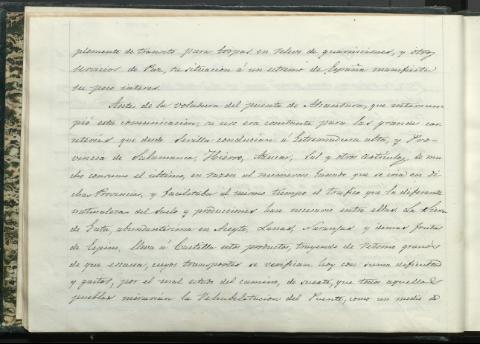 plemente de transito para tropas en relevo de guarniciones, y otros
servicios de Paz, su situacion á un estremo de España manifiesta
su poco interes.
Antes de la voladura del puente de Alcantara, que interrum
pió esta comunicacion, su uso era constante para las grandes car
reterias que desde Sevilla conducian á Estremadura alta, y Pro-
vincia de Salamanca, Hierro, Sal y otros articulos, de mu
cho consumo el ultimo, en razon al numeroso Ganado que se cria en di
chas Provincias, y facilitaba al mismo tiempo el trafico que la diferente
naturaleza del suelo y producciones hace necesario entre ellas. La Sierra
de Gata, abundantisima en Aceyte, Lanas, Naranjas, y demas frutas
de lujo, lleva á Castilla estos productos, trayendo de retorno granos
de que escasea, cuyos transportes se verifican hoy con suma dificultad
y gastos, por el mal estado del camino, de suerte, que todos aquellos
pueblos mirarian la rehabilitacion del Puente, como un medio de